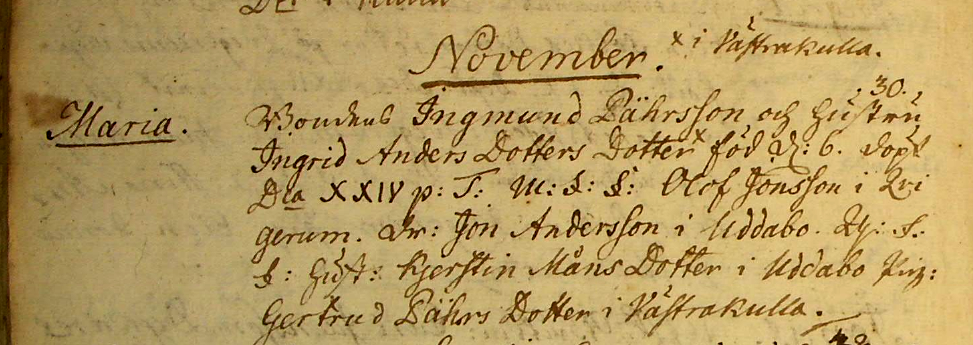 November. x i Västrakulla.
Maria. Bondens Ingmund Pährsson och Hustru 30.
Ingrid Anders Dotters Dotter x föd d: 6. döpt
Dca XXIV p: T: M: S: S: Olof Jonsson i Qvi
gerum. Dr: Jon Andersson i Uddabo. Qv: S.
S: Hust: Kjerstin Måns Dotter i Uddabo Pig:
Gertrud Pährs Dotter i Västrakulla.